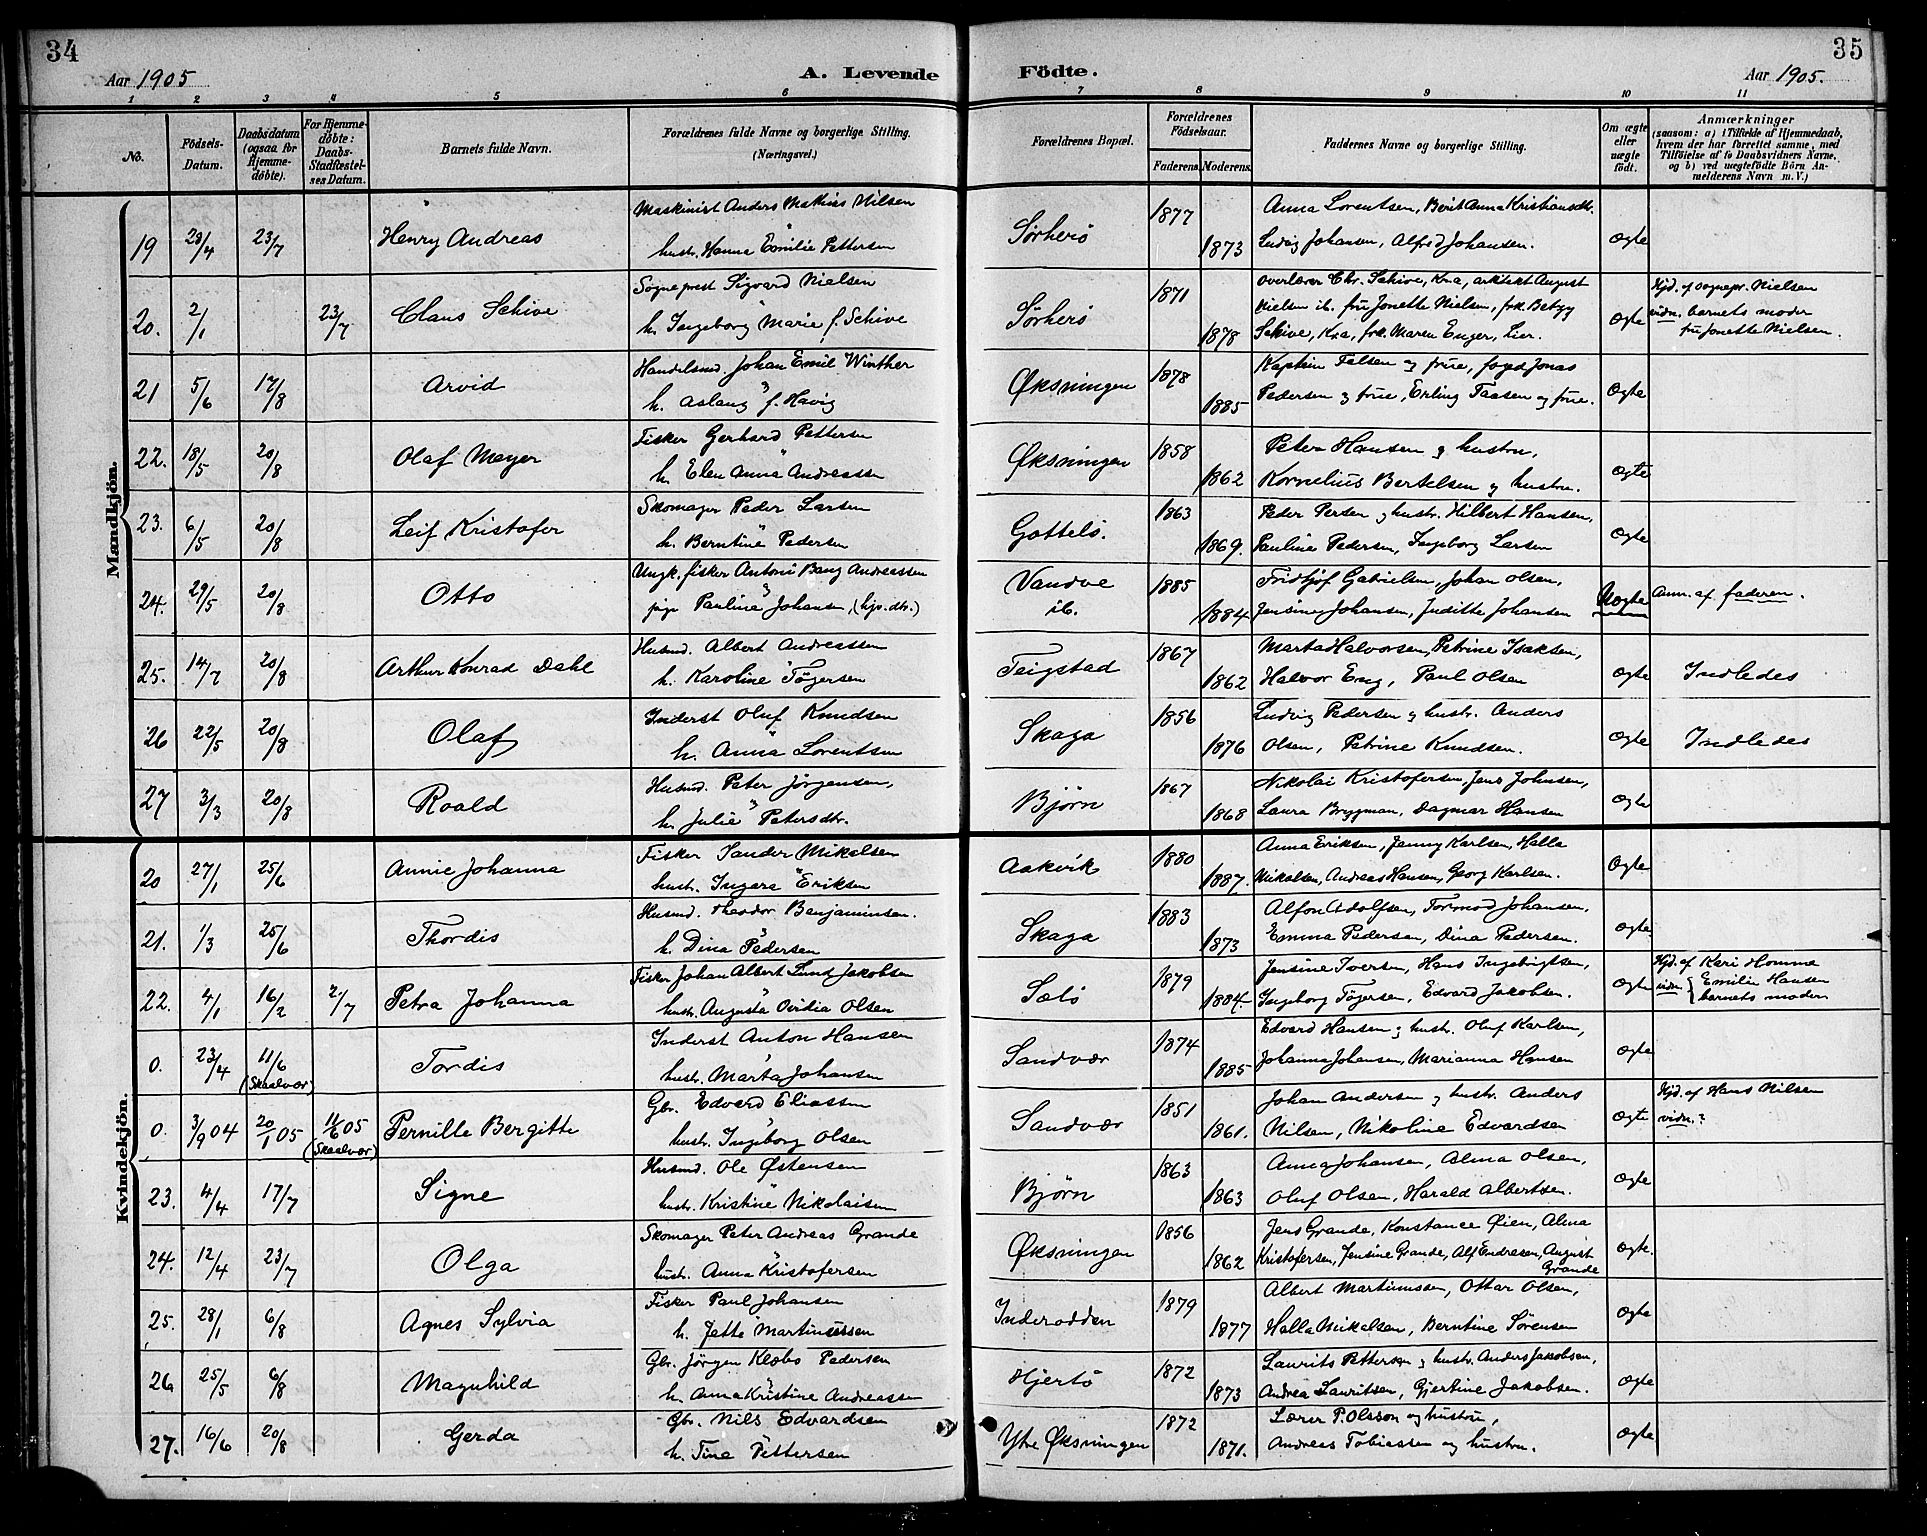 34
Aar 1905
A. Levende Födte.
35
Aar 1905.
1 2 3 4 5 6 7 8 9 10 11
No.
Födsels-Datum.
Daabsdatum (ogsaa for Hjemmedöbte).
For Hjemmedöbte: Daabs-Stadfæstelses Datum.
Barnets fulde Navn.
Forældrenes fulde Navne og borgerlige Stilling.
(Næringsvei.)
Forældrenes Bopæl.
Forældrenes Födselsaar.
Faderens.
Moderens.
Faddernes Navne og borgerlige Stilling.
Om ægte eller uægte födt.
Anmærkninger
(saasom: a) i Tilfælde af Hjemmedaab, hvem der har forrettet samme, med Tilföielse af to Daabsvidners Navne, og b) ved uægtefödte Börn Anmelderens Navn m. V.)
Mandkjön.
19 28/4 23/7 Henry Andreas Maskinist Anders Mathias Nilsen
hustr. Hanna Emilie Pettersen Sørherö 1877 1873 Anna Lorentsen, Berit Anna Kristiansdtr.
Ludvig Johansen, Alfred Johansen. Ægte
20. 2/1 23/7 Claus Schive Sogneprest Sigvard Nielsen
h. Ingeborg Marie f. Schive Sørherö 1871 1878 overlærer Chr. Schive, Kra, arkitekt August
Nielsen ib. fru Jonette Nielsen, frk. Betzy
Schive, Kra, frk. Maren Enger, Lier. Ægte Hjd. af sognepr. Nielsen
vidn. barnets moder
fru Jonette Nielsen.
21 5/6 17/8 Arvid Handelsmd. Johan Emil Winther
h. Aslaug f. Havig Øksningen 1878 1885 Kaptein Falsen og frue, foged Jonas
Pedersen og frue, Erling Taasen og frue. Ægte
22. 18/5 20/8 Olaf Meyer Fisker Gerhard Pettersen
h. Elen Anna Andreassen Øksningen 1858 1862 Peter Hansen og hustru,
Kornelius Bertelsen og hustru. Ægte
23. 6/5 20/8 Leif Kristofer Skomager Peder Larsen
h. Berntine Pedersen Gottelö. 1863 1869. Peder Persen og hustr. Hilbert Hansen,
Pauline Pedersen, Ingeborg Larsen Ægte
24. 29/5 20/8 Otto Ungk. fisker Antoni Bang Andreassen
pige Paulina Johansen, (hjs.dtr.) Vandve
ib. 1885 1884 Fridtjof Gabrielsen, Johan Olsen,
Jensine Johansen, Juditte Johansen Uægte Anm. af faderen.
25. 14/7 20/8 Arthur Konrad Dahl Husmd. Albert Andreassen
h. Karoline Tøgersen Teigstad 1867 1862 Marta Halvorsen, Petrine Isaksen,
Halvor Eng, Paul Olsen Ægte Indledes
26 22/5 20/8 Olaf Inderst Oluf Knudsen
h. Anna Lorentsen Skaga 1856 1876 Ludvig Pedersen og hustr. Anders
Olsen, Petrine Knudsen. Ægte Indledes
27 3/3 20/8 Roald Husmd. Peter Jørgensen,
h. Julie Petersdtr. Bjørn 1867 1868 Nikolai Kristofersen, Jens Johnsen,
Laura Brygman, Dagmar Hansen Ægte
Kvindekjön.
20 27/1 25/6 Annie Johanna Fisker Sander Mikalsen
hustr. Ingara Eriksen Aakvik 1880 1887. Anna Eriksen, Jenny Karlsen, Halla
Mikalsen, Andreas Hansen, Georg Karlsen. Ægte
21. 1/3 25/6 Thordis Husmd. Theodor Benjaminsen.
h. Dina Pedersen Skaga 1883 1873 Alfon Adolfsen, Tormod Johansen,
Emma Pedersen, Dina Pedersen. Ægte
22. 4/1 16/2 2/7 Petra Johanna Fisker Johan Albert Lund Jakobsen
hustr. Augusta Ovidia Olsen Sælö 1879 1884. Jensine Iversen, Hans Ingebrigtsen,
Ingeborg Tøgersen, Edvard Jakobsen. Ægte Hjd. af Kari Homme
vidn. Emilie Hansen
barnets moder
0. 23/4 11/6 (Skaalvær) Tordis Inderst Anton Hansen
hustr. Marta Johansen Sandvær 1874 1885 Edvard Hansen og hustr. Oluf Karlsen,
Johanna Johansen, Marianna Hansen Ægte
0. 3/9 04 20/1 05 11/6 05 (Skaalvær) Pernille Bergitte Gbr. Edvard Eliassen
hustr. Ingeborg Olsen Sandvær 1851 1861. Johan Andersen og hustr. Anders
Nilsen, Nikoline Edvardsen Ægte Hjd. af Hans Nilsen
vidn.?
23. 4/4 17/7 Signe Husmd. Ole Østensen
hustr. Kristine Nikolaisen Bjørn 1863 1863 Anna Johansen, Alma Olsen,
Oluf Olsen, Harald Albertsen. Ægte
24. 12/4 23/7 Olga Skomager Peter Andreas Grande
hustr. Anna Kristofersen Øksningen 1856 1862 Jens Grande, Konstance Øien, Alma
Kristofersen, Jensine Grande, Alf Endresen, August
Grande Ægte.
25. 28/1 6/8 Agnes Sylvia Fisker Paul Johansen
h. Jette Martinussen Inderodden 1879 1877 Albert Martinussen, Ottar Olsen,
Halla Mikalsen, Berntine Sørensen Ægte
26 25/5 6/8 Magnhild Gbr. Jørgen Klæbo Pedersen
h. Anna Kristine Andreassen Hjertö 1872 1873 Laurits Pettersen og hustr. Anders Jakobsen,
Andrea Lauritsen, Gjertine Jakobsen. Ægte
27. 16/6 20/8 Gerda Gbr. Nils Edvardsen
h. Tine Pettersen Ytre Øksningen 1872 1871. Lærer P. Olsson og hustru,
Andreas Tobiassen og hustru. Ægte